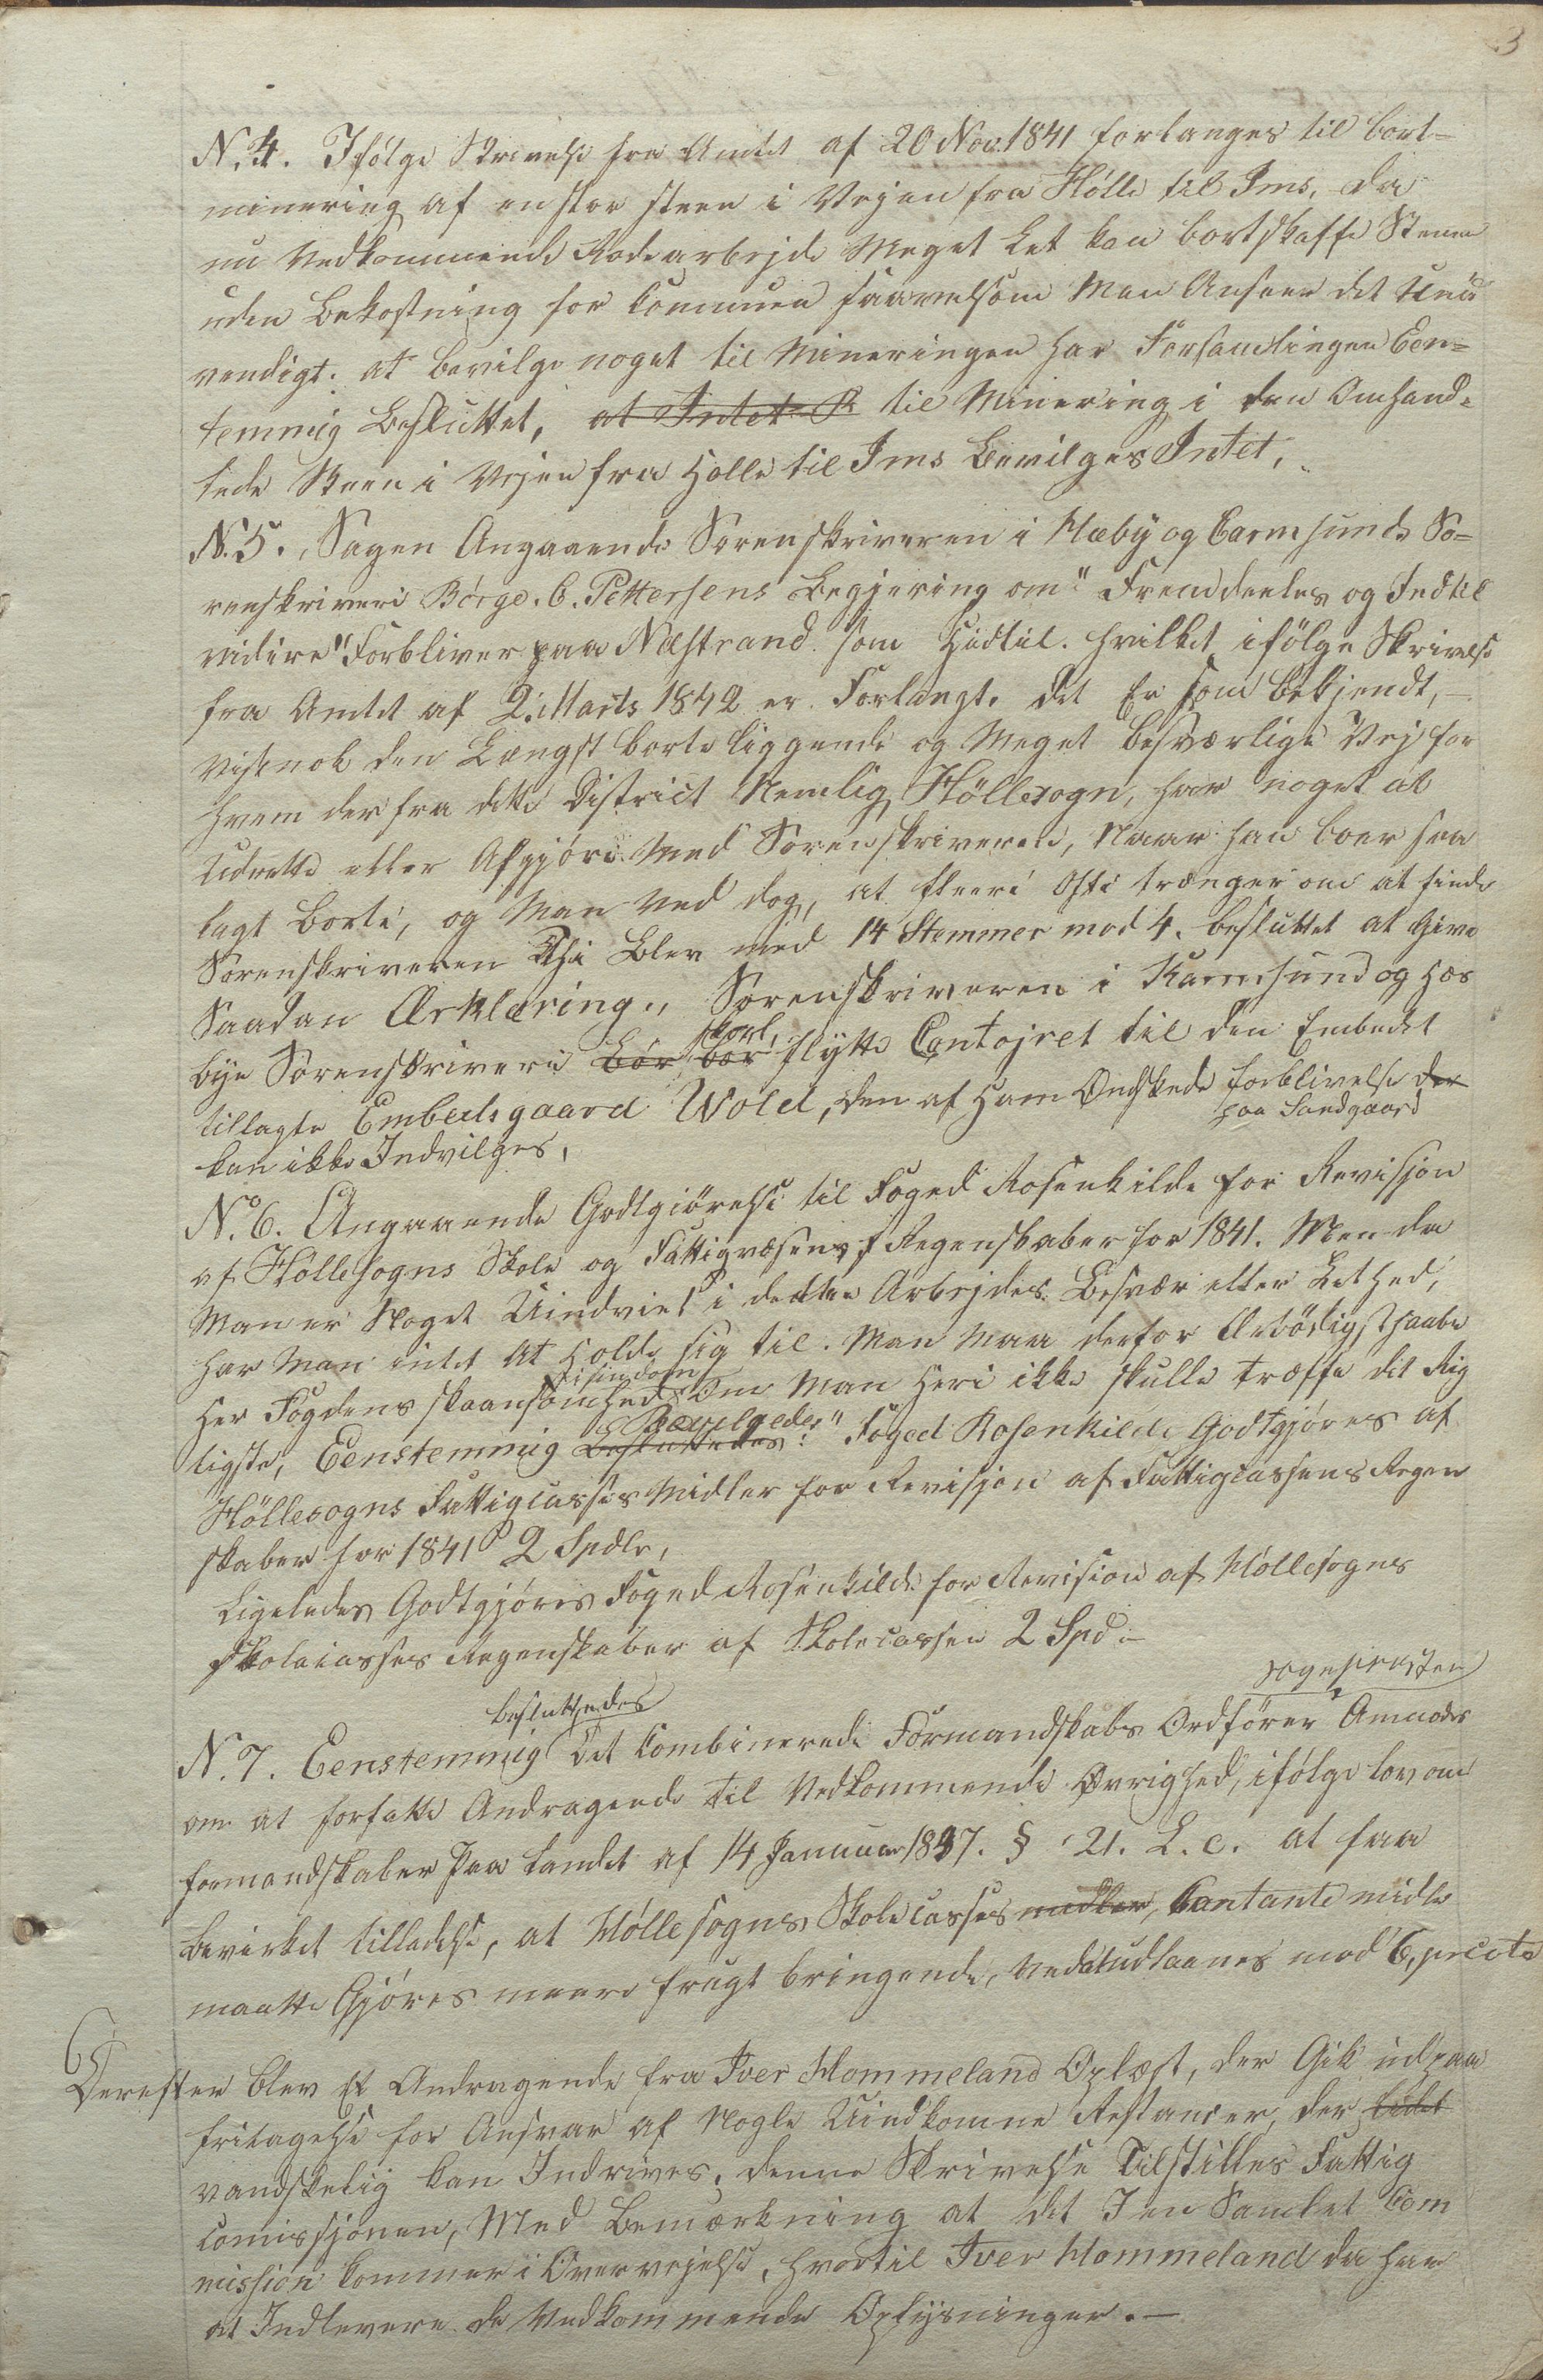 3
N. 4. Ifølge Skrivelse fra Amtet af 20 Nov. 1841 forlanges til bort-
minering af en stor steen i Vejen fra Hölle til Ims, da
nu Vedkommende Rodearbejde Meget Let kan bortskaffe Stenen
uden Bekostning for Communen saavelsom Man Anseer det Unød
vendigt. at bevilge noget til Mineringen har Forsamlingen Een-
temmig Besluttet, at Intet til Minering i den Omhand-
lede Steen i Vejen fra Holle til Ims Bevilges Intet,
N. 5. Sagen Angaaende Sorenskriveren i Hæby og Carmsunds So-
renskriveri Börge. C. Pettersens Begjering om" Fremdeeles og Indtil
vidire" Forbliver paa Næstrand som Hidtil. hvilket ifölge Skrivelse
fra Amtet af 2. Marts 1842 er Forlangt. det Er som bekjendt, -
vistnok den Længst borte liggende og Meget besværlige Vej for
hvem der fra dette District Nemlig Höllesogn, har noget at
Udrette eller Afgjöre Med Sorenskriveren, Naar han boer saa
langt borte, og Man Ved dog, at fleere Ofte trænger om at finde
Sorenskriveren Thi Blev med 14 Stemmer mod 4. besluttet at Give
Saadan Ærklæring" Sorenskriveren i Karmsund og Hæs
skal,
bye Sorenskriveri bör bör flytte Contojret til den Embedet
tillagte Embedsgaard Wold, den af Ham Ønskede forblivelse der
paa Sandgaard
kan ikke Indvilges,
No. 6. Angaaende Godtgiörelse til Foged Rosenkilde for Revisjon
af Höllesogns Skole og Fattigvæsens Regenskaber for 1841. Men da
Man er Noget Uindviet i dette Arbejdes Besvær eller Lethed,
har Man intet At Holde sig til. Man Maa derfor Ærbödigst haabe
Her Fogdens skaansomhed Om Man Heri ikke skulle træffe det Rig
Bevilgedes
tigste, Eenstemmig Besluttedes: " Foged Rosenkilde Godtgjöres af
Höllesogns Fattigcasses Midler for Revisjon af Fattigcassens Regen
skaber for 1841 2 Spdlr,
Ligeledes Godtgjöres Foged Rosenkilde for Revision af Höllesogns
Skolecasses Regenskaber af Skolecassen 2 Spd -
besluttedes
sogneprasten
N. 7. Eenstemmig Det Combinerede Formandskabs Ordförer Anmodes
om at forfatte Andragende til Vedkommende Øvrighed, ifölge lov om
formandskaber Paa Landet af 14 Januar 1837. § 21. L. c. at faa
bevirket tilladelse, at Höllesogns Skolecasses midler, Contante midle
maatte Gjöres meere frugt bringende, Ved at udlaanes mod 6, procto
Derefter blev Et Andragende fra Iver Hommeland Oplæst, der Gik ud paa
fritagelse for Ansvar af Nogle Uindkomne Restancer, der
vandskelig kan Indrives, denne Skrivelse Tilstilles Fattig
comissjonen, Med Bemærkning at det I en Samlet Com
mission kommer i Overvejelse, hvortil Iver Hommeland da har
at Indlevere de Vedkommende Oplysninger. -